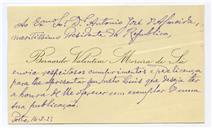 Ao Exmo Sr. Dr. Antonio José d'Almeida,
meritissimo Presidente da Republica,
Bernardo Valentim Moreira de Sá
envia respeitosos cumprimentos e pede licença
para lhe apresentar seu neto Luis que deseja ter
a honra de lhe oferecer um exemplar d'uma
sua publicação.
Porto,